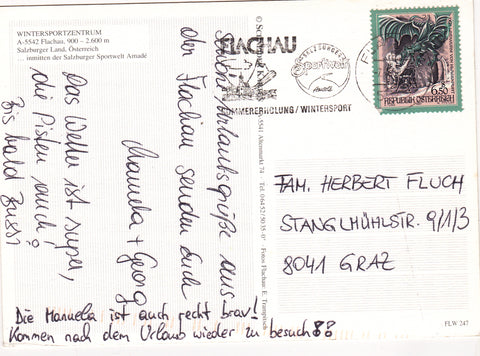 WINTERSPORTZENTRUM
A-5542 Flachau, 900 – 2.600 m
Salzburger Land, Österreich
... inmitten der Salzburger Sportwelt Amadé
FLACHAU
SOMMERERHOLUNG/WINTERSPORT
6.50
REPUBLIK ÖSTERREICH
Schöne Urlaubsgrüße aus
der Flachau senden Euch
Manuela + Georg
Das Wetter ist super,
die Pisten auch!
Bis bald Bussi
Die Manuela ist auch recht brav!
Kommen nach dem Urlaub wieder zu besuch!!
A-5541 Altenmarkt 74 · Tel. 06452/5035-0 · Fotos Flachau: E. Trampitsch
FAM. HERBERT FLUCH
STANGLMÜHLSTR. 9/1/3
8041 GRAZ
FLW 247